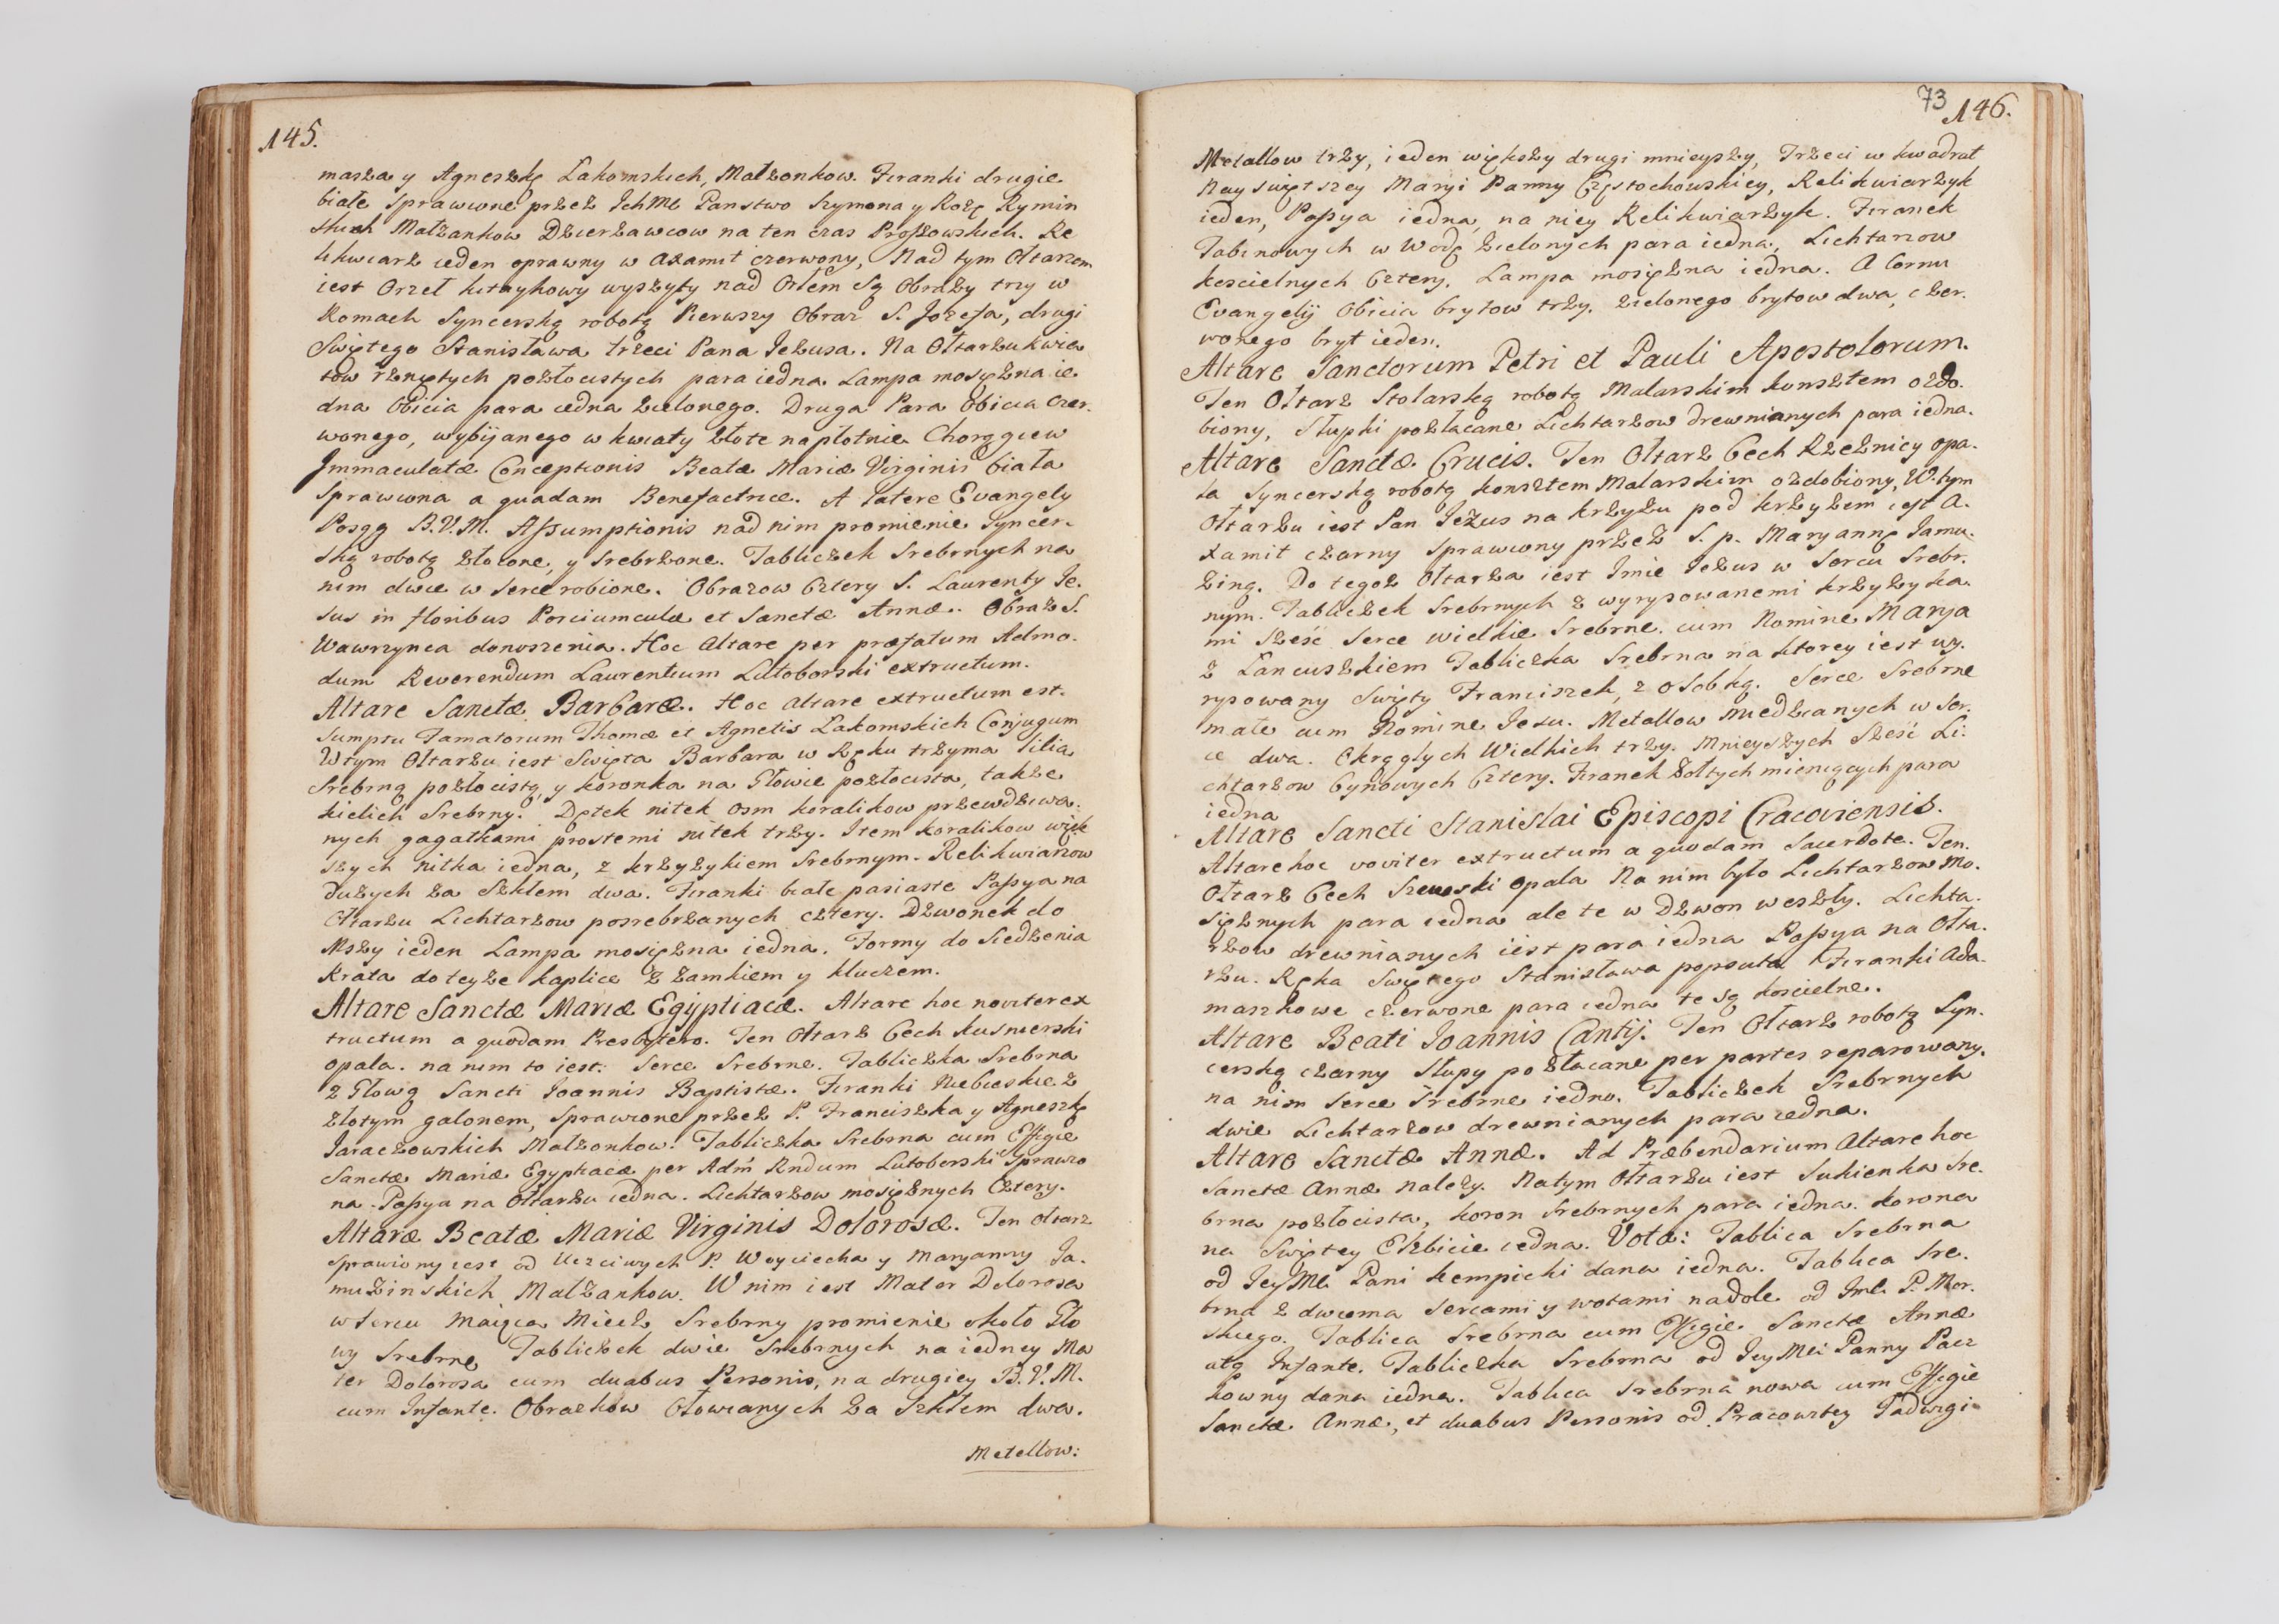 145.
masza y Agneszkę Łakomskich, Małzonkow. Firanki drugie
białe sprawione przez Ich Mć Panstwo Szymona y Rożę Rymin
skich Małzankow Dzierzawcow na ten czas Proszowskich. Re
likwiarz ieden oprawny w axamit czerwony, Nad tym Ołtarzem
iest Orzeł kitaykowy wyszyty nad Orłem Są Obrazy trzy w
Ramach Syncerską robotą Pierwszy Obraz S. Jozefa, drugi
Swiętego Stanisława trzeci Pana Jezusa. Na Ołtarzu kwia
tow rzniętych pozłocistych para iedna Lampa mosiężna ie
dna Obicia para iedna zielonego. Druga Para Obicia czer.
wonego, wybijanego w kwiaty złote na płotnie Chorągiew
Immaculatæ Conceptionis Beatæ Mariæ Virginis biała
Sprawiona a quadam Benefactrice. A latere Evangely
Posąg B.V.M. Assumptionis nad nim promienie syncer.
ską robotą złocone, y srebrzone. Tabliczek Srebrnych na
nim dwie w serce robione. Obrazow Cztery S. Laurenty Je.
sus in floribus Porciumculæ et Sanctæ Annæ. Obraz S.
Wawrzynca donoszenia. Hoc Altare per præfatum Admo.
dum Reverendum Laurentium Lutoborski extructum.
Altare Sanctæ Barbaræ. Hoc altare extructum est.
Sumptu Famatorum Thomæ et Agnetis Łakomskich Conjugum
W tym Ołtarzu iest Swięta Barbara w Ręku trzyma lilia
Srebrną pozłocistą, y koronka na Głowie pozłocista, także
kielich Srebrny. Dętek nitek osm koralikow przewdziewa.
nych gagatkami prostemi nitek trzy. Item koralikow więk
szych nitka iedna, z krzyżykiem Srebrnym. Relikwiarzow
Dużych za Szkłem dwa. Firanki białe pasiaste Passya na
Ołtarzu Lichtarzow posrebrzanych cztery. Dzwonek do
Mszy ieden Lampa mosiężna iedna. Formy do Siedzenia
Krata do teyże kaplice z zamkiem y kluczem.
Altare Sanctæ Mariæ Egyptiacæ. Altare hoc noviter ex
tructum a quodam Presbytero. Ten Ołtarz Cech kusnierski
opala. na nim to iest: Serce Srebrne. Tabliczka Srebrna
z Głową Sancti Joannis Baptistæ. Firanki Niebieskie z
złotym galonem, sprawione przez P. Franciszka y Agneszkę
Jaraczowskich Małzonkow. Tabliczka Srebrna cum Effigie
Sanctæ Mariæ Egyptiacæ per Adm Rndum Lutoborski Sprawio
na. Passya na Ołtarzu iedna. Lichtarzow mosiężnych Cztery.
Altaræ Beatæ Mariæ Virginis Dolorosæ. Ten Ołtarz
sprawiony iest od Uczciwych P. Woyciecha y Maryanny Ja.
muzinskich Małżankow. W nim iest Mater Dolorosa
w sercu maiąca Miecz Srebrny promienie około Gło
wy Srebrne Tabliczek dwie Srebrnych na iedney Ma
ter Dolorosa cum duabus Personis, na drugiey B.V.M.
cum Infante. Obrazkow Ołowianych za Szkłem dwa.
Metallow:
73 146.
Metallow trzy, ieden większy drugi mnieyszy, Trzeci w kwadrat
Nayswiętszey Maryi Panny Częstochowskiey, Relikwiarzyk
ieden, Passya iedna, na niey Relikwiarzyk. Firanek
Tabinowych w Wodę zielonych para iedna, Lichtarzow
koscielnych Cztery. Lampa mosiężna iedna. A Cornu
Evangelij Obicia brytow trzy. zielonego brytow dwa, czer.
wonego bryt ieden.
Altare Sanctorum Petri et Pauli Apostolorum.
Ten Ołtarz Stolarską robotą Malarskim konsztem ozdo.
biony, Słupki pozłacane Lichtarzow drewnianych para iedna.
Altare Sanctæ Crucis. Ten Ołtarz Cech Rzeznicy opa.
la Syncerską robotą konsztem Malarskim ozdobiony, W tym
Ołtarzu iest Pan Jezus na krzyżu pod krzyżem iest A.
xamit czarny sprawiony przez S. p. Maryannę Jamu.
zing. Do tegoz Ołtarza iest Imie Jezus w Sercu Srebr.
nym. Tabliczek Srebrnych z wyrysowanemi krzyżyka.
mi sześć Serce wielkie Srebrne. cum Nomine Marya
z Łancuszkiem Tabliczka Srebrna na ktorey iest wy.
rysowany Swięty Franciszek, z osobką. Serce Srebrne
małe cum Nomine Jesu. Metallow miedzianych w Ser.
ce dwa. Okrągłych Wielkich trzy. Mnieyszych Sześć Li.
chtarzow Cynowych Cztery. Firanek żołtych mieniących para
iedna
Altare Sancti Stanislai Episcopi Cracoviensis.
Altare hoc noviter extructum a quodam Sacerdote. Ten.
Ołtarz Cech Szewski opala Na nim było Lichtarzow Mo.
siężnych para iedna ale te w Dzwon weszły. Lichta.
rzow drewnianych iest para iedna Passya na Ołta.
rzu. Ręka Swiętego Stanisława popsuta Firanki Ada.
maszkowe czerwone para iedna te są koscielne.
Altare Beati Joannis Cantij. Ten Ołtarz robotą Syn.
cerską czarny Słupy pozłacane per partes reparowany.
na nim Serce Srebrne iedno. Tabliczek Srebrnych
dwie Lichtarzow drewnianych para iedna.
Altare Sanctæ Annæ. Ad Præbendarium Altare hoc
Sanctæ Annæ należy. Na tym Ołtarzu iest Sukienka Sre.
brna pozłocista, koron Srebrnych para iedna. korona
na Swiętey Elzbicie iedna. Vota: Tablica Srebrna
od Jey Mć Pani kempicki dana iedna. Tablica Sre.
brna z dwiema Sercami y wotami na dole od Jmć P. Mor.
skiego. Tablica Srebrna cum Effigie Sanctæ Annæ
atq Infante. Tabliczka Srebrna od Jey Mci Panny Pacz
kowny dana iedna. Tablica Srebrna nowa cum Effigie
Sanctæ Annæ, et duabus Personis od Pracowitey Jadwigi